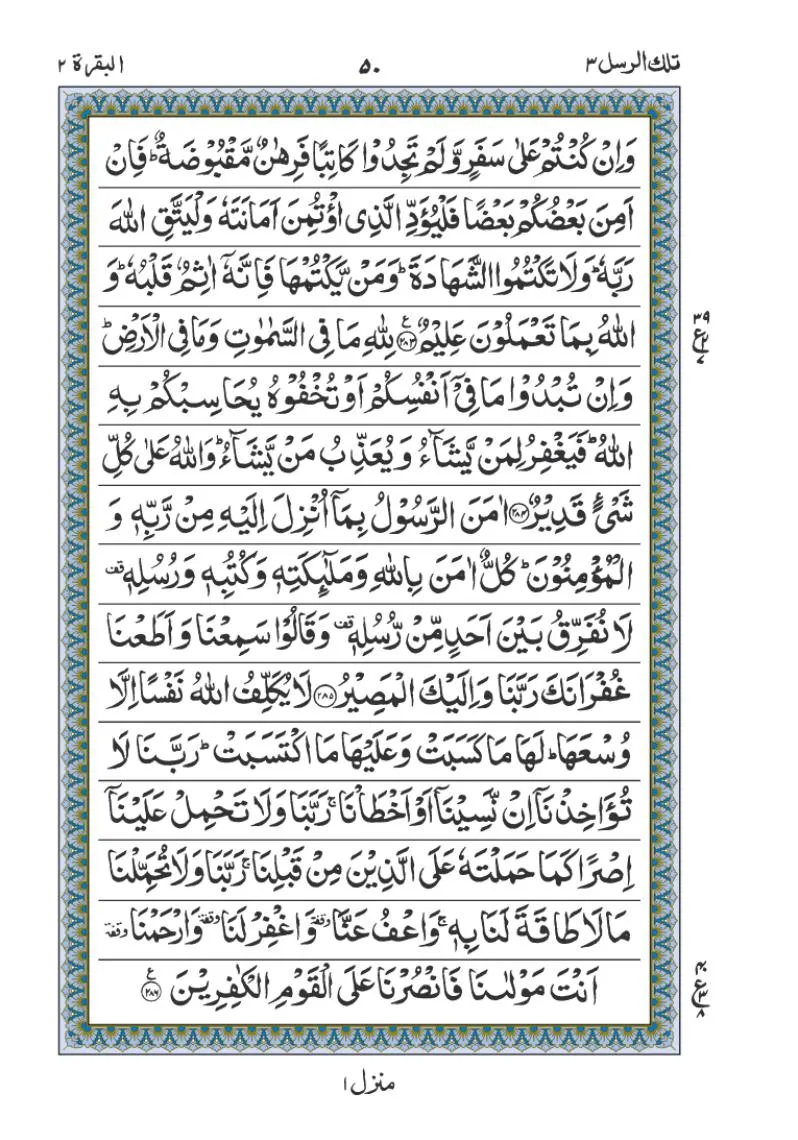 تلك الرسل ٣ ٥٠ البقرة ٢
وَاِنْ كُنْتُمْ عَلٰى سَفَرٍ وَّلَمْ تَجِدُوْا كَاتِبًا فَرِهٰنٌ مَّقْبُوْضَةٌ ؕ فَاِنْ
اَمِنَ بَعْضُكُمْ بَعْضًا فَلْيُؤَدِّ الَّذِى اؤْتُمِنَ اَمَانَتَهٗ وَلْيَتَّقِ اللّٰهَ
رَبَّهٗ ؕ وَلَا تَكْتُمُوا الشَّهَادَةَ ؕ وَمَنْ يَّكْتُمْهَا فَاِنَّهٗۤ اٰثِمٌ قَلْبُهٗ ؕ وَ
اللّٰهُ بِمَا تَعْمَلُوْنَ عَلِيْمٌ ﴿٢٨٣﴾ ع لِلّٰهِ مَا فِى السَّمٰوٰتِ وَمَا فِى الْاَرْضِ ؕ
٣٩
ع
٢
٧
وَاِنْ تُبْدُوْا مَا فِىْۤ اَنْفُسِكُمْ اَوْ تُخْفُوْهُ يُحَاسِبْكُمْ بِهِ
اللّٰهُ ؕ فَيَغْفِرُ لِمَنْ يَّشَآءُ وَيُعَذِّبُ مَنْ يَّشَآءُ ؕ وَاللّٰهُ عَلٰى كُلِّ
شَىْءٍ قَدِيْرٌ ﴿٢٨٤﴾ اٰمَنَ الرَّسُوْلُ بِمَاۤ اُنْزِلَ اِلَيْهِ مِنْ رَّبِّهٖ وَ
الْمُؤْمِنُوْنَ ؕ كُلٌّ اٰمَنَ بِاللّٰهِ وَمَلٰٓئِكَتِهٖ وَكُتُبِهٖ وَرُسُلِهٖ قف
لَا نُفَرِّقُ بَيْنَ اَحَدٍ مِّنْ رُّسُلِهٖ قف وَقَالُوْا سَمِعْنَا وَاَطَعْنَا
غُفْرَانَكَ رَبَّنَا وَاِلَيْكَ الْمَصِيْرُ ﴿٢٨٥﴾ لَا يُكَلِّفُ اللّٰهُ نَفْسًا اِلَّا
وُسْعَهَا ؕ لَهَا مَا كَسَبَتْ وَعَلَيْهَا مَا اكْتَسَبَتْ ؕ رَبَّنَا لَا
تُؤَاخِذْنَاۤ اِنْ نَّسِيْنَاۤ اَوْ اَخْطَاْنَا ۚ رَبَّنَا وَلَا تَحْمِلْ عَلَيْنَاۤ
اِصْرًا كَمَا حَمَلْتَهٗ عَلَى الَّذِيْنَ مِنْ قَبْلِنَا ۚ رَبَّنَا وَلَا تُحَمِّلْنَا
مَا لَا طَاقَةَ لَنَا بِهٖ ۚ وَاعْفُ عَنَّا وقفة وَاغْفِرْ لَنَا وقفة وَارْحَمْنَا وقفة
اَنْتَ مَوْلٰىنَا فَانْصُرْنَا عَلَى الْقَوْمِ الْكٰفِرِيْنَ ﴿٢٨٦﴾ ع
٤٠
ع
٣
٨
منزل ١